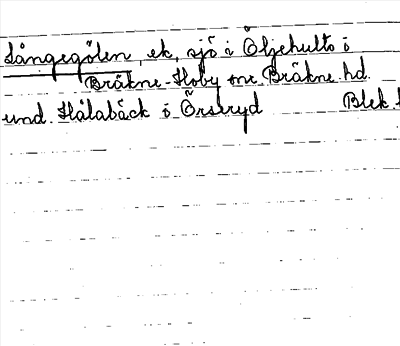 Långegölen, ek, sjö i Öljehults ö
Bräkne-Hoby sn Bräkne hd.
und. Hålabäck i Örseryd Blek.